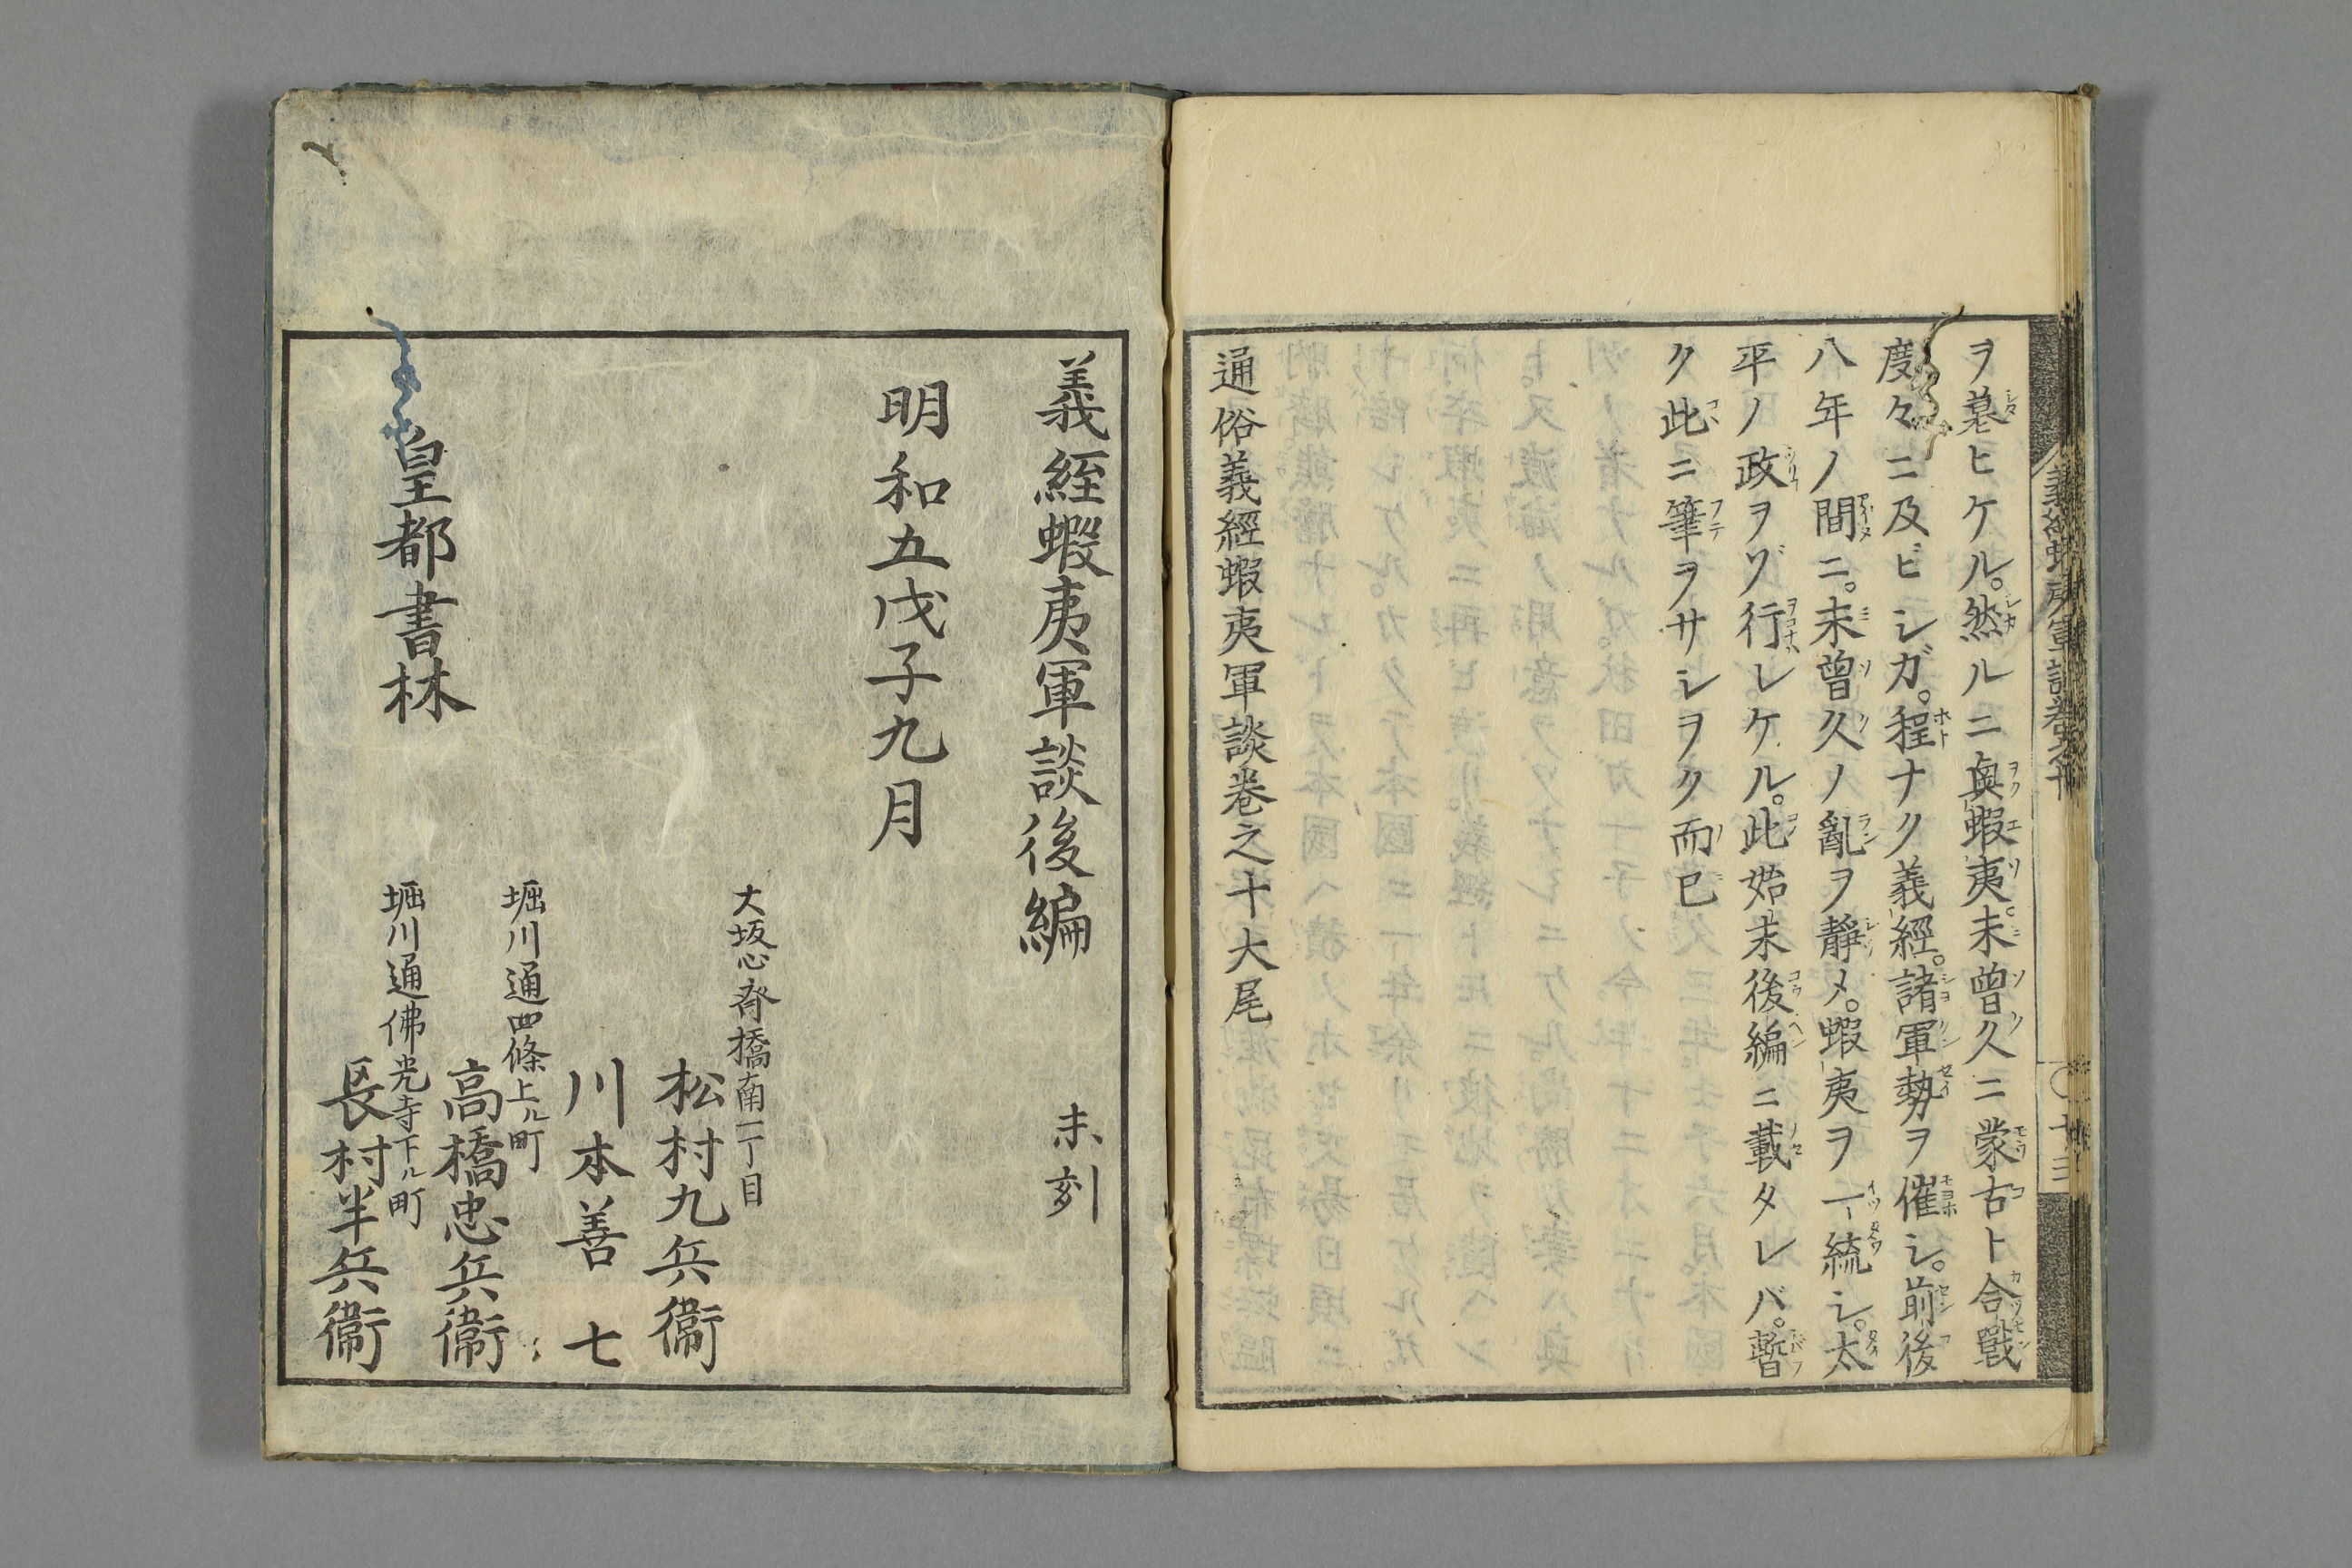 ヲ慕ヒケル。然ルニ奥蝦夷。未曾久ニ蒙古ト合戰
度々ニ及ビシガ。程ナク義經。諸軍勢ヲ催シ。前後
八年ノ間ニ。未曾久ノ亂ヲ靜メ。蝦夷ヲ一統シ。太
平ノ政ヲヅ行レケル。此始末後編ニ載タレバ。暫
ク此ニ筆ヲサシヲク而已
通俗義經蝦夷軍談卷之十大尾
義経蝦夷軍談後編 未刻
明和五戊子九月
大坂心斎橋南一丁目
松村九兵衞
川本善七
堀川通四條上ル町
高橋忠兵衞
堀川通佛光寺下ル町
長村半兵衞
皇都書林